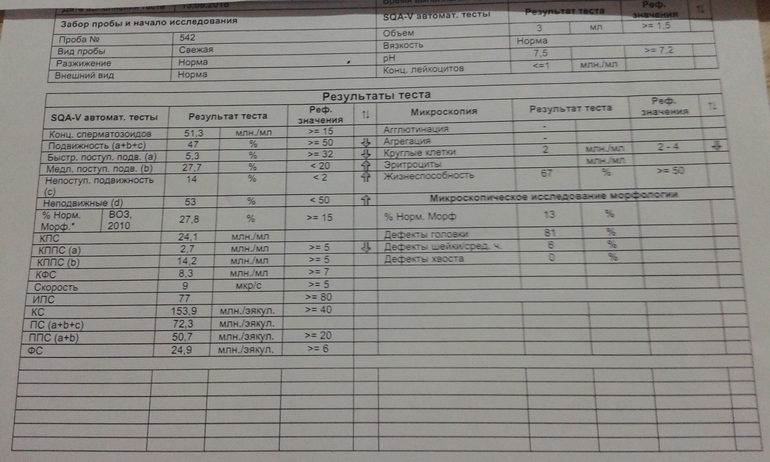 13.09.2018
Забор пробы и начало исследования
Проба № 542
Вид пробы Свежая
Разжижение Норма
Внешний вид Норма
SQA-V автомат. тесты Результат теста Реф. значения ↑↓
Объем 3 мл >= 1,5
Вязкость Норма
pH 7,5 >= 7,2
Конц. лейкоцитов <=1 млн./мл
Результаты теста
SQA-V автомат. тесты Результат теста Реф. значения ↑↓ Микроскопия Результат теста Реф. значения ↑↓
Конц. сперматозоидов 51,3 млн./мл >= 15 Агглютинация -
Подвижность (a+b+c) 47 % >= 50 ⇩ Агрегация -
Быстр. поступ. подв. (a) 5,3 % >= 32 ⇩ Круглые клетки 2 млн./мл 2 - 4 ⇩
Медл. поступ. подв. (b) 27,7 % < 20 ⇧ Эритроциты млн./мл
Непоступ. подвижность (c) 14 % < 2 ⇧ Жизнеспособность 67 % >= 50
Неподвижные (d) 53 % < 50 ⇧ Микроскопическое исследование морфологии
% Норм. Морф.* ВОЗ, 2010 27,8 % >= 15 % Норм. Морф 13 %
КПС 24,1 млн./мл Дефекты головки 81 %
КППС (a) 2,7 млн./мл >= 5 ⇩ Дефекты шейки/сред. ч. 6 %
КППС (b) 14,2 млн./мл >= 5 Дефекты хвоста 0 %
КФС 8,3 млн./мл >= 7
Скорость 9 мкр/с >= 5
ИПС 77 >= 80
КС 153,9 млн./эякул. >= 40
ПС (a+b+c) 72,3 млн./эякул.
ППС (a+b) 50,7 млн./эякул. >= 20
ФС 24,9 млн./эякул. >= 6